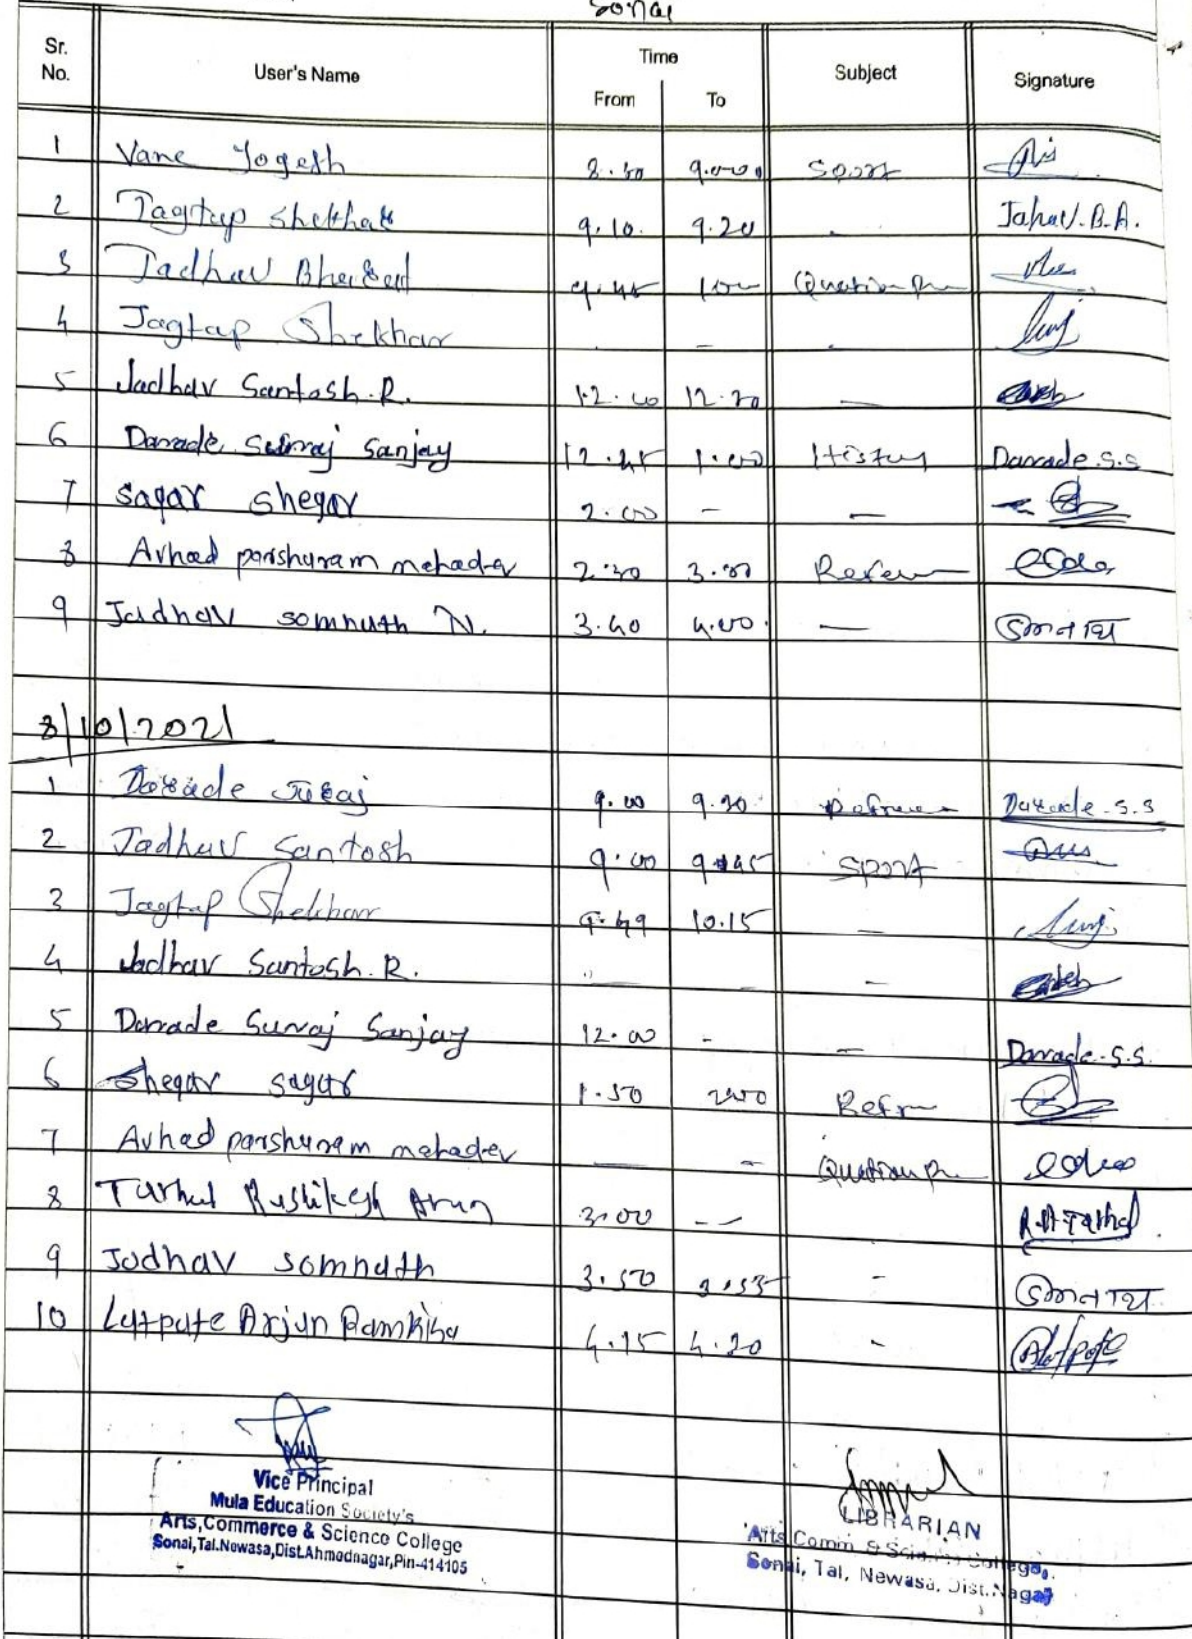 Sonai
Sr. No. User's Name Time From To Subject Signature
1 Vane Yogesh 8.50 9.00 Sport
2 Jagtap Shekhar 9.10 9.20 - Jahav.B.A.
3 Jadhav 9.45 Question
4 Jagtap Shekhar - -
5 Jadhav Santosh.R. 12.00 12.20 —
6 Darade Suraj Sanjay 12.45 1.00 History Darade.S.S
7 Sagar Shegar 2.00 - —
8 Avhad parshuram mahadev 2.30 3.00
9 Jadhav somnath N. 3.40 4.00 — सोमनाथ
8/10/2021
1 Darade Suraj 9.00 9.30 Darade.S.S
2 Jadhav Santosh 9.00 9.45 Sport
3 Jagtap Shekhar 9.49 10.15 -
4 Jadhav Santosh.R. - -
5 Darade Suraj Sanjay 12.00 - — Darade.S.S.
6 Shegar Sagar 1.50 2.00
7 Avhad parshuram mahadev — - Question
8 Tarhal Rushikesh Arun 3.00 -- R.A.Tarhal
9 Jadhav somnath 3.50 3.55 - सोमनाथ
10 Latpate Arjun Ramkisa 4.15 4.20 -
Vice Principal
Mula Education Society's
Arts,Commerce & Science College
Sonai,Tal.Newasa,Dist.Ahmednagar,Pin-414105
LIBRARIAN
Arts Comm. & Science College,
Sonai, Tal, Newasa, Dist.Nagar